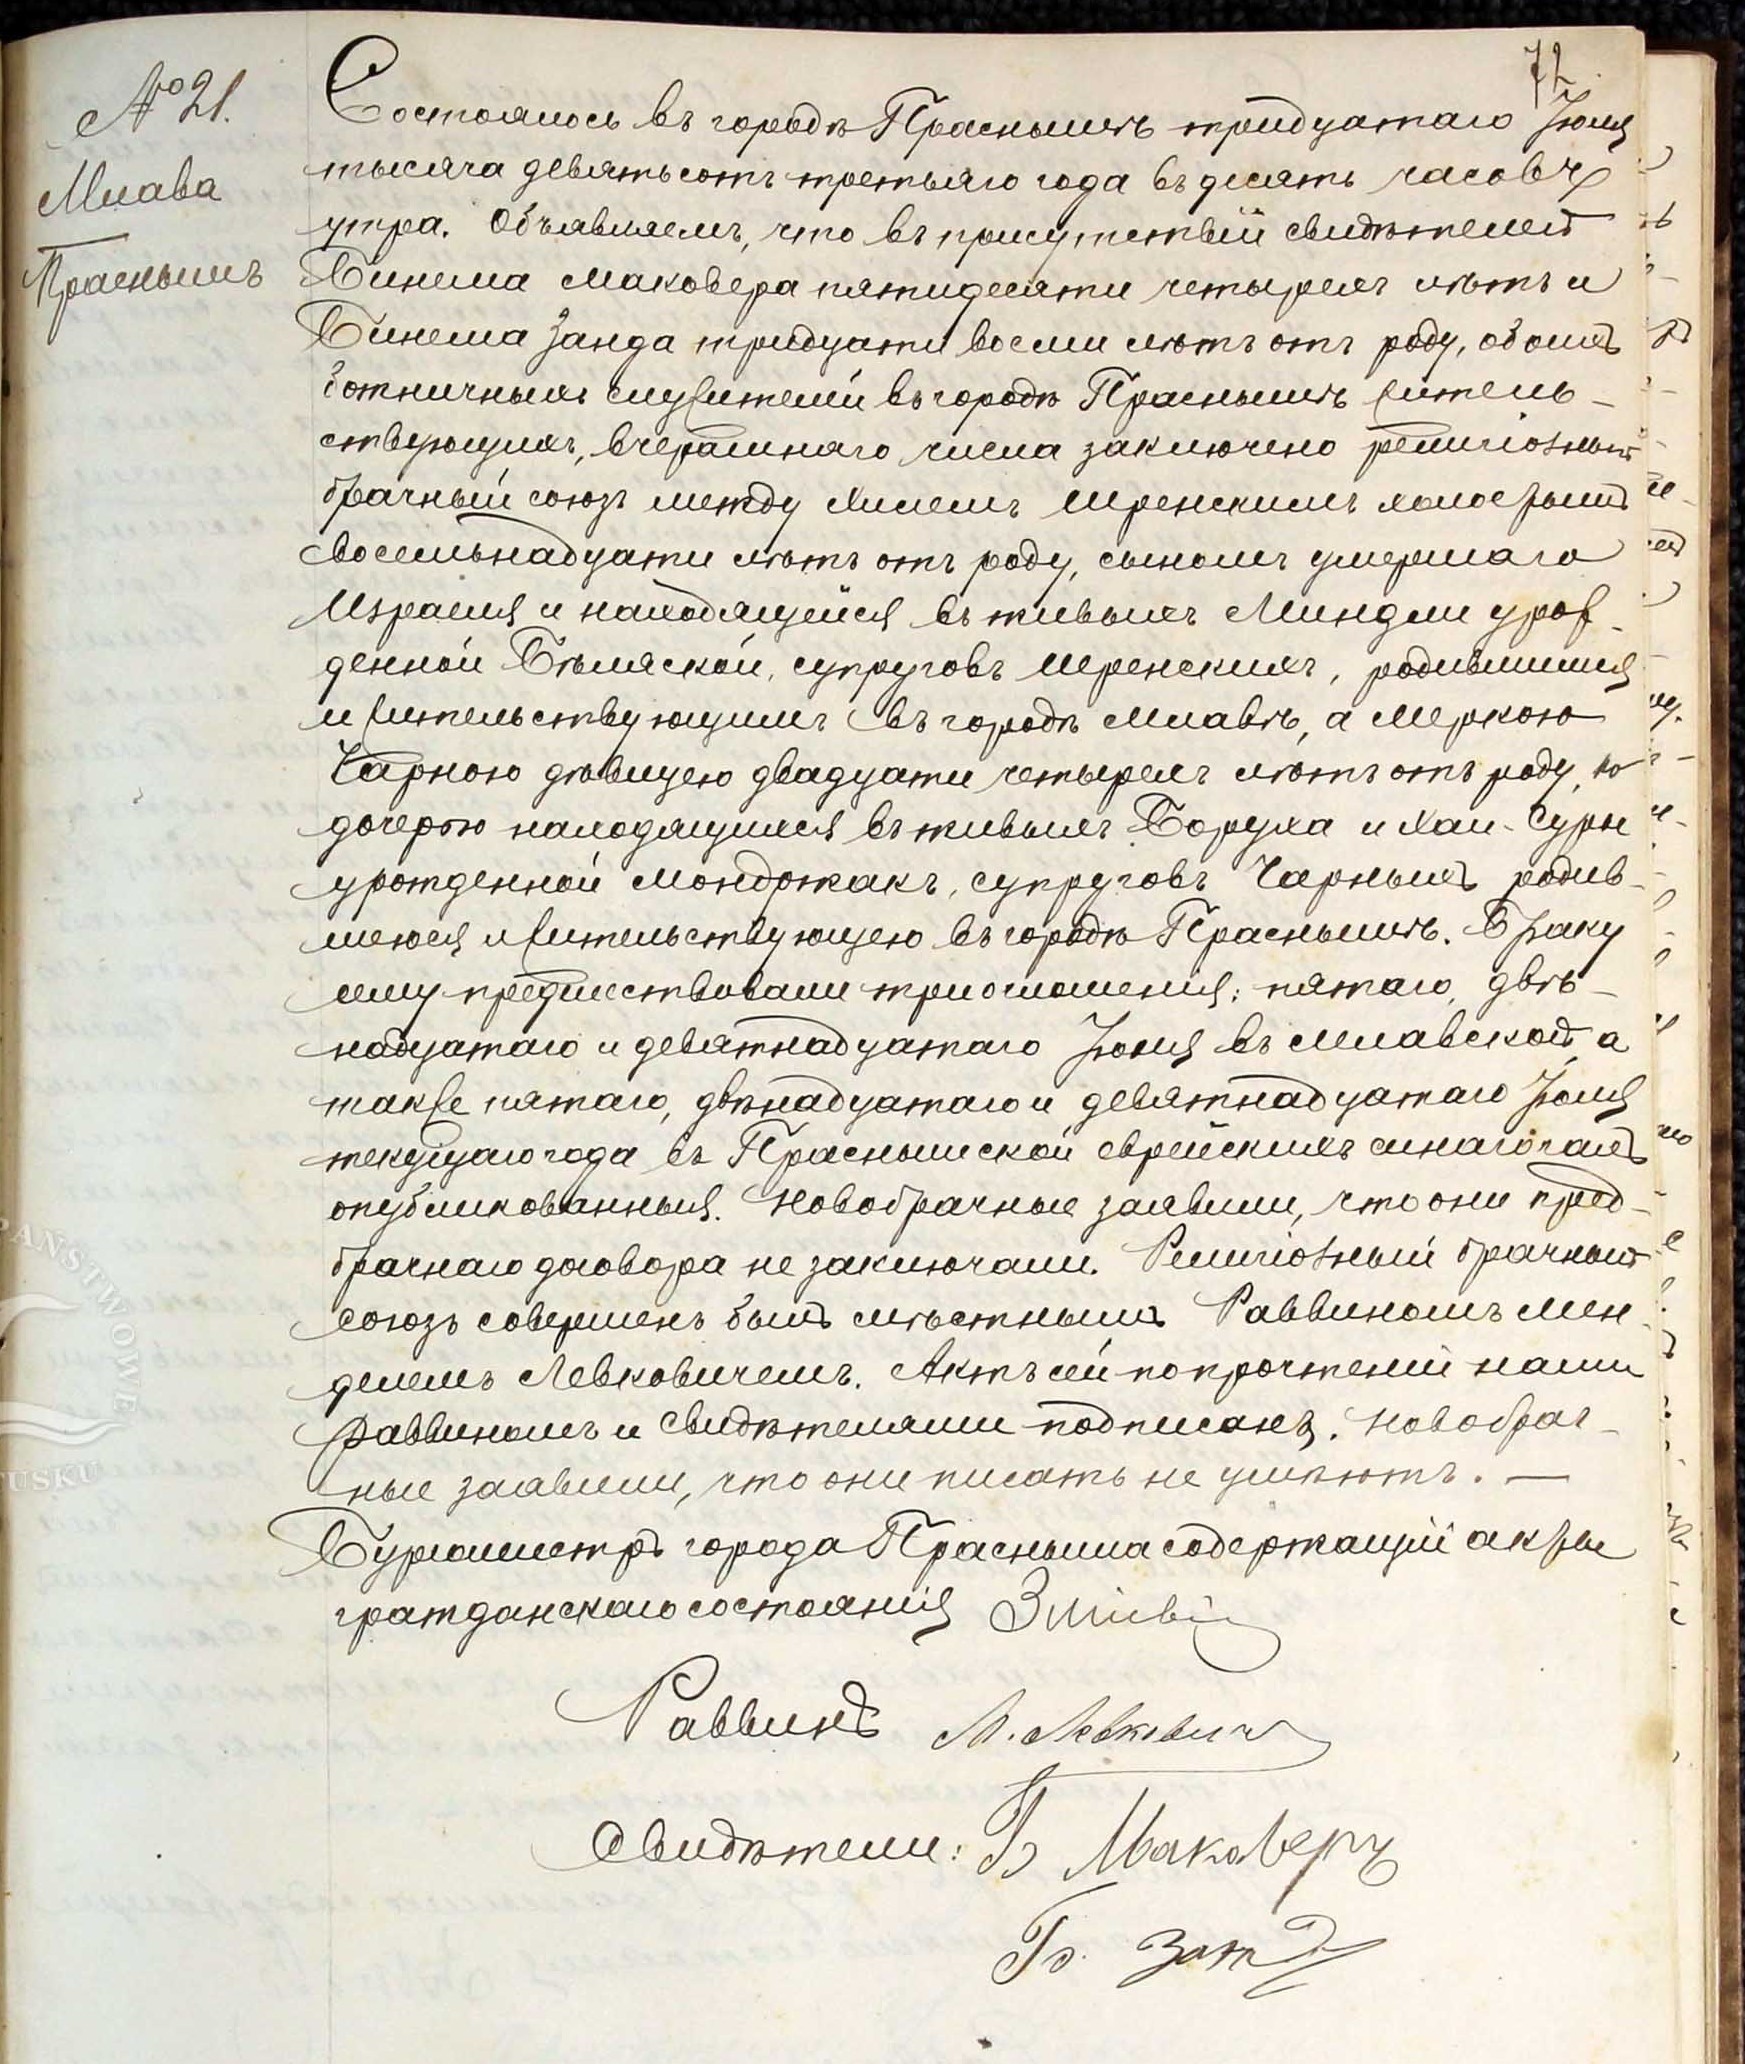 72
№ 21.
Млава
Праснышъ
Состоялось въ городѣ Праснышѣ тридцатаго Іюля
тысяча девятьсотъ третьяго года въ десять часовъ
утра. Объявляемъ, что въ присутствіи свидѣтелей
Бинема Маковера пятидесяти четырехъ лѣтъ и
Бинема Занда тридцати восьми лѣтъ отъ роду, обоихъ
божничныхъ служителей въ городѣ Праснышѣ житель-
ствующихъ, вчерашняго числа заключено религіозный
брачный союзъ между Хилемъ Шренскимъ холостымъ
восемьнадцати лѣтъ отъ роду, сыномъ умершаго
Израиля и находящейся въ живыхъ Миндли урож-
денной Бѣляской, супруговъ Шренскихъ, родившимся
и жительствующимъ въ городѣ Млавѣ, а Меркою
Чарною дѣвицею двадцати четырехъ лѣтъ отъ роду,
дочерью находящихся въ живыхъ Боруха и Хаи-Суры
урожденной Мондржакъ, супруговъ Чарныхъ родив-
шеюся и жительствующею въ городѣ Праснышѣ. Браку
сему предшествовали три оглашенія: пятаго, двѣ-
надцатаго и девятнадцатаго Іюля въ Млавской а
также пятаго, двѣнадцатаго и девятнадцатаго Іюля
текущаго года въ Праснышской еврейскихъ синагогахъ
опубликованныя. Новобрачные заявили, что они пред-
брачнаго договора не заключали. Религіозный брачный
союзъ совершенъ былъ мѣстнымъ Раввиномъ Мен-
делемъ Левковичемъ. Актъ сей по прочтеніи нами
Раввиномъ и Свидѣтелями подписанъ. Новобрач-
ные заявили, что они писать не умѣютъ. —
Бургомистръ города Прасныша содержащій акты
гражданскаго состоянія
Раввинъ М. Левковичъ
Свидѣтели: Б Маковеръ
Б. Занд
PAŃSTWOWE